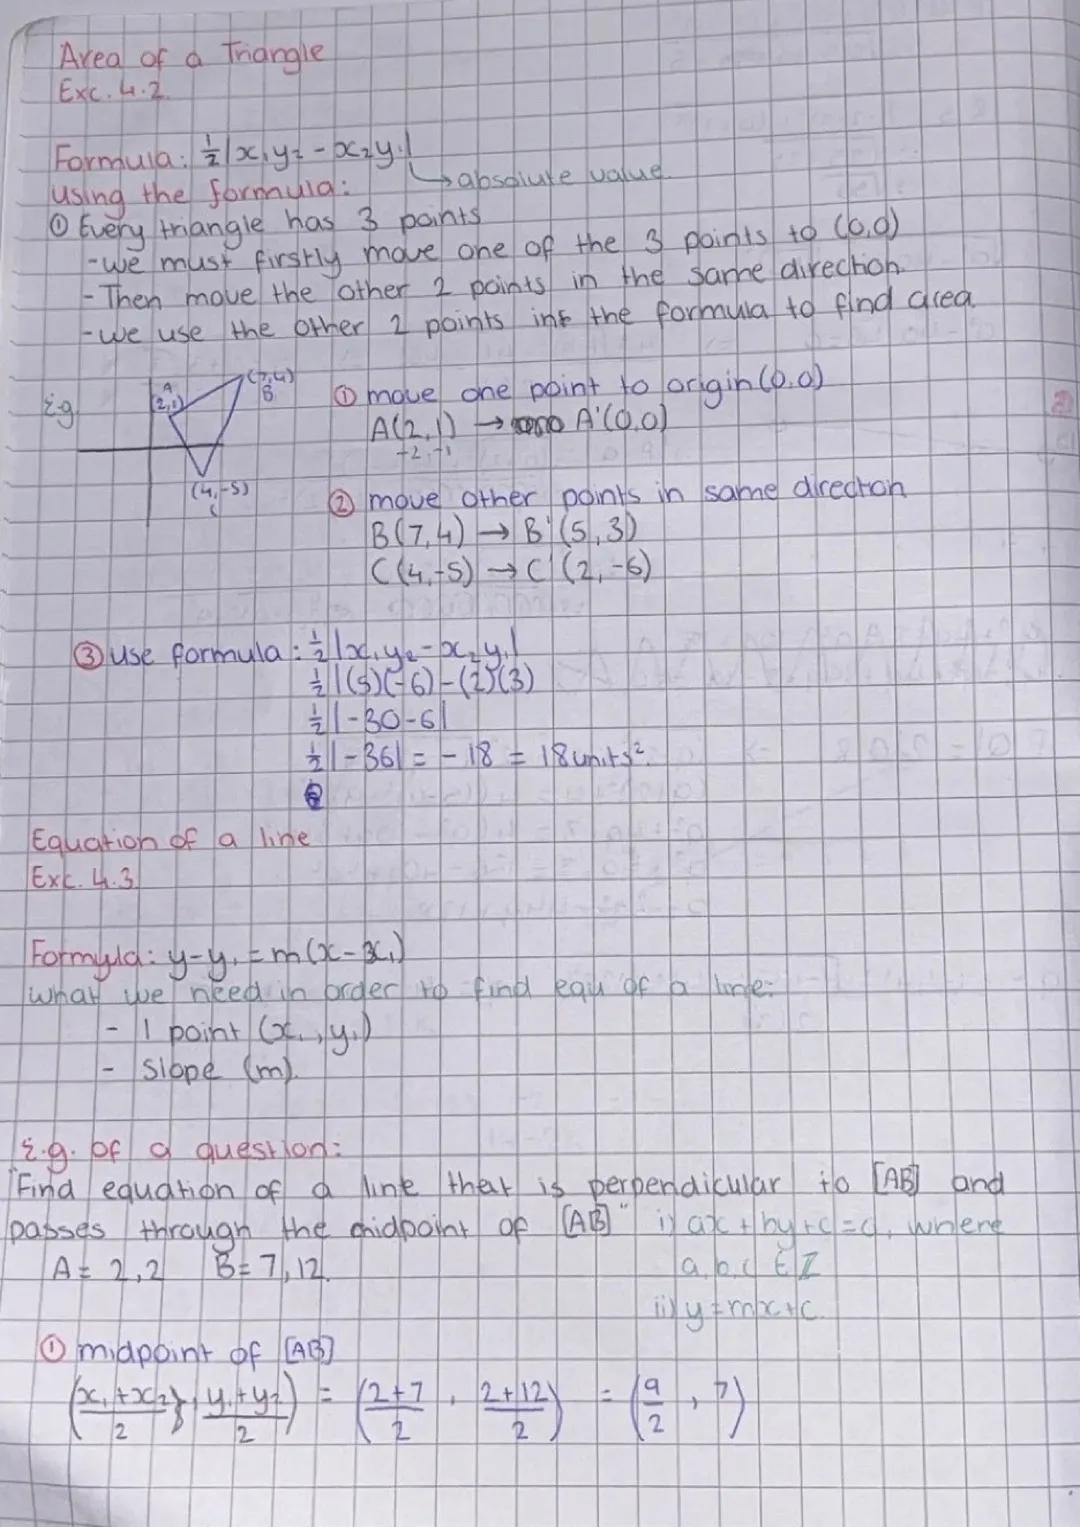 Area of a Triangle
Exc. 4.2.
Formula: ½|x₁y₂ - x₂y₁|
↳ absolute value.
using the formula:
① Every triangle has 3 points
- we must firstly move one of the 3 points to (0,0)
- Then move the other 2 points in the same direction.
- we use the other 2 points int the formula to find area.
E.g
A
(2,1)
(7,4)
B
(4,-5)
C
① move one point to origin (0.0)
A(2,1) → A'(0,0)
-2,-1
② move other points in same direction
B(7,4) → B'(5,3)
C(4,-5) → C'(2,-6)
③ use formula: ½|x₁y₂ - x₂y₁|
½|(5)(-6)-(2)(3)
½|-30-6|
½|-36| = -18 = 18units².
Equation of a line
Exc. 4.3
Formula: y-y₁ = m(x-x₁)
what we need in order to find equ of a line:
- 1 point (x₁,y₁)
- Slope (m).
E.g. of a question:
"Find equation of a line that is perpendicular to [AB] and
passes through the midpoint of [AB]" i) ax+by+c=0, where
A= 2,2 B= 7,12. a,b,c ∈ Z
ii) y=mx+c.
① midpoint of [AB]
(x₁+x₂/2, y₁+y₂/2) = (2+7/2, 2+12/2) = (9/2, 7)